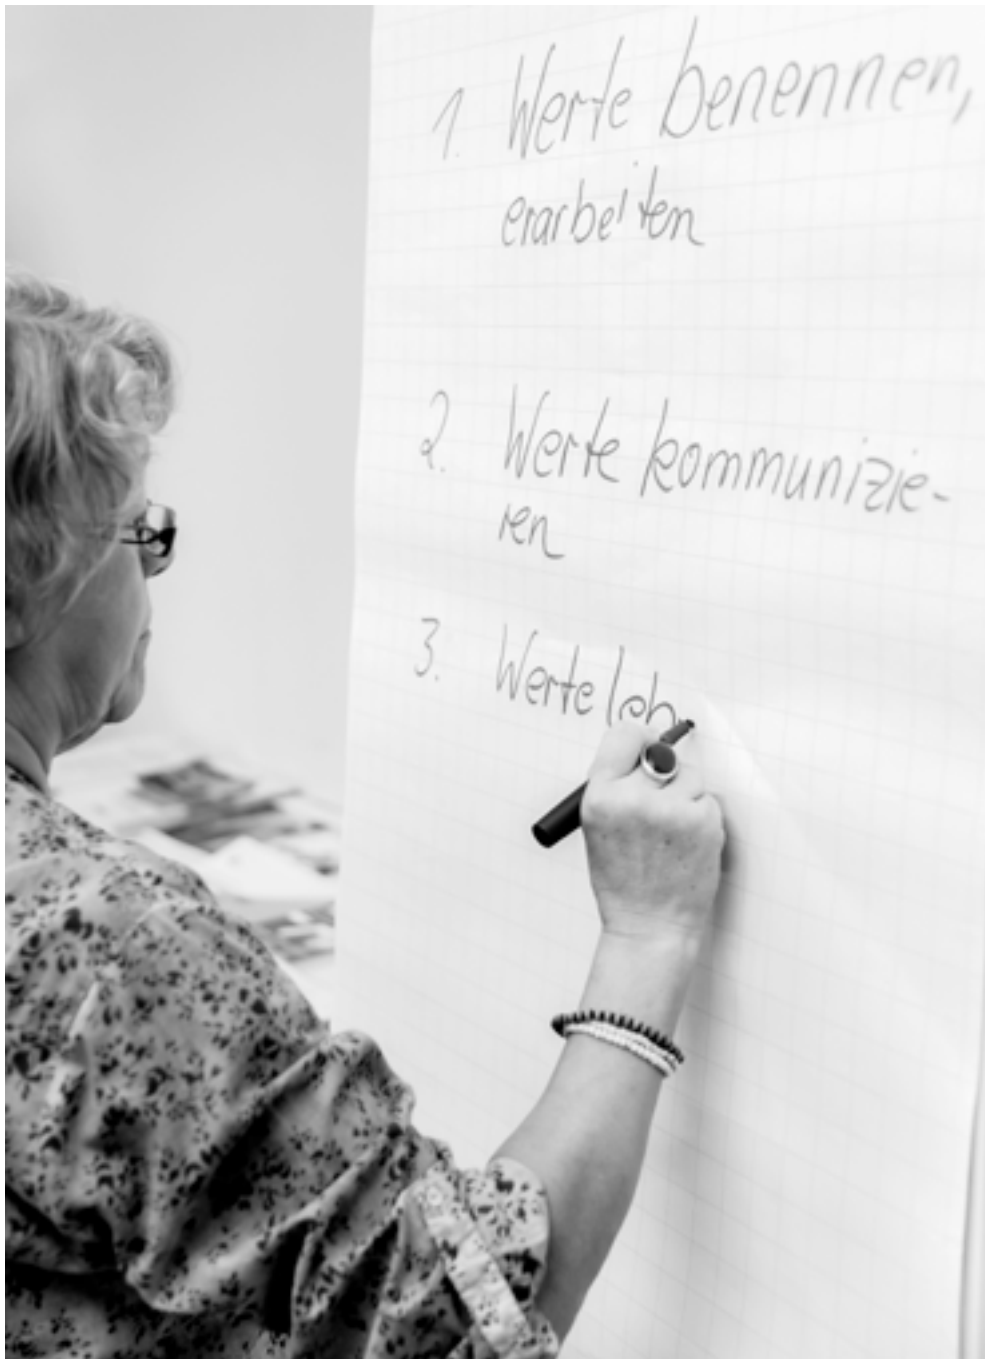 1. Werte benennen,
erarbeiten
2. Werte kommunizie-
ren
3. Werte leb